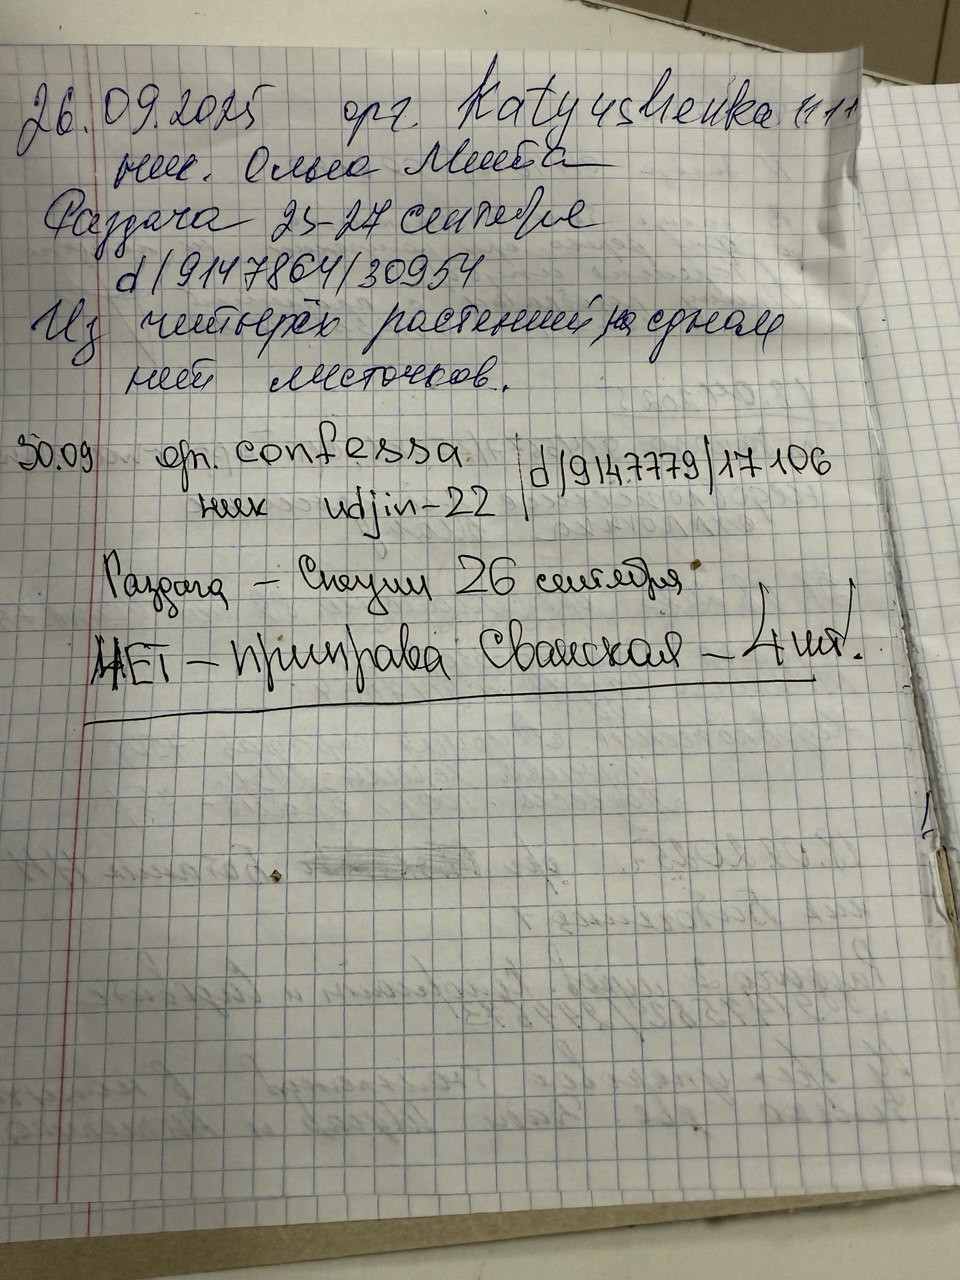 26.09.2025 орг. Katyushenka 111
ник. Ольга Мията
Раздача 25-27 сентября
d/9147864/30954
Из читырёх растений на одном
нет листочков.
30.09 орг. confessa
ник udjin-22
d/9147779/17106
Раздача - Специи 26 сентября
НЕТ - приправа Сванская - 4 шт.